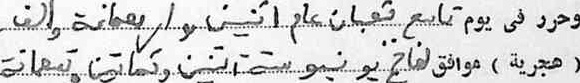 وحرر فى يوم تاسع شعبان عام اثنين واربعمائة والف
( هجرية ) موافق لفاتح يونيو سنة اثنين وثمانين وتسعمائة